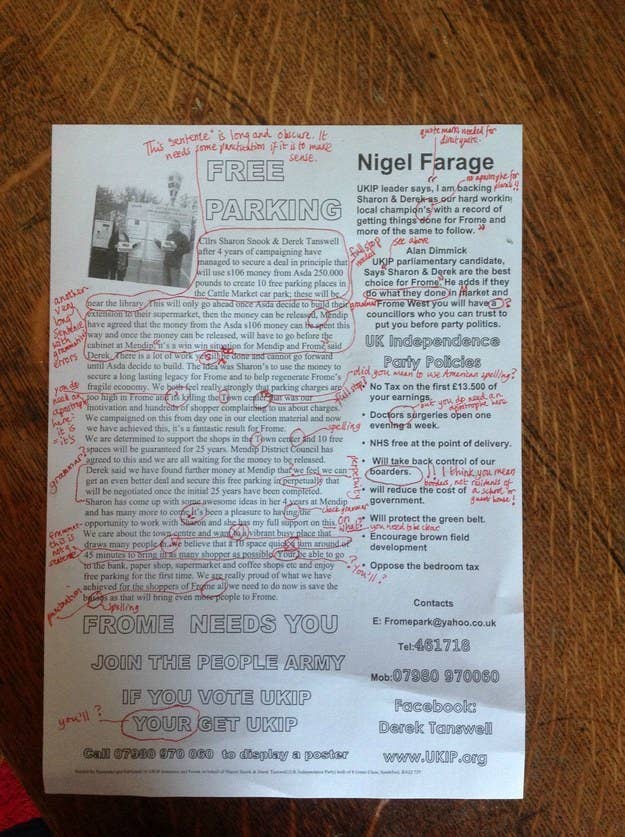 This "sentence" is long and obscure. It
needs some punctuation if it is to make
sense.
FREE
PARKING
Cllrs Sharon Snook & Derek Tanswell
after 4 years of campaigning have
managed to secure a deal in principle that
will use s106 money from Asda 250.000
pounds to create 10 free parking places in
the Cattle Market car park; these will be
near the library. This will only go ahead once Asda decide to build their
extension to their supermarket, then the money can be released, Mendip
have agreed that the money from the Asda s106 money can be spent this
way and once the money can be released, will have to go before the
cabinet at Mendip. "s a win win situation for Mendip and Frome" said
Derek. There is a lot of work to be done and cannot go forward
until Asda decide to build. The idea was Sharon's to use the money to
secure a long lasting legacy for Frome and to help regenerate Frome's
fragile economy. We both feel really strongly that parking charges are
too high in Frome and is killing the Town center that was our
motivation and hundreds of shopper complaining to us about charges.
We campaigned on this from day one in our election material and now
we have achieved this, it's a fantastic result for Frome.
We are determined to support the shops in the Town center and 10 free
spaces will be guaranteed for 25 years. Mendip District Council has
agreed to this and we are all waiting for the money to be released.
Derek said we have found further money at Mendip that we feel we can
get an even better deal and secure this free parking in perpetually that
will be negotiated once the initial 25 years have been completed.
Sharon has come up with some awesome ideas in her 4 years at Mendip
and has many more to come, it's been a pleasure to having the
opportunity to work with Sharon and she has my full support on this.
We care about the town centre and want a vibrant busy place that
draws many people in. We believe that a 10 space quick turn around of
45 minutes to bring in as many shopper as possible. Your be able to go
to the bank, paper shop, supermarket and coffee shops etc and enjoy
free parking for the first time. We are really proud of what we have
achieved for the shoppers of Frome all we need to do now is save the
as that will bring even more people to Frome.
FROME NEEDS YOU
JOIN THE PEOPLE ARMY
IF YOU VOTE UKIP
YOUR GET UKIP
Call 07980 970 060 to display a poster
another
very
long
sentence
with
grammatical
errors
you do
need an
apostrophe
here:
it is
= it's
grammar?
grammar -
this is
not a
sentence
punctuation
spelling
you'll?
full stop
needed
full stop
spelling
perpetuity
check grammar
on
what? - you need to be clear
? You'll?
quote marks needed for
direct quote.
no apostrophe for
plurals!!
Nigel Farage
UKIP leader says, I am backing
Sharon & Derek as our hard working
local champion's with a record of
getting things done for Frome and
more of the same to follow.
see above
Alan Dimmick
UKIP parliamentary candidate,
Says Sharon & Derek are the best
choice for Frome. He adds if they
do what they done in Market and
Frome West you will have a
councillors who you can trust to
put you before party politics.
UK Independence
Party Policies
did you mean to use American spelling?
No Tax on the first £13.500 of
your earnings.
but you do need an
apostrophe here
Doctors surgeries open one
evening a week.
NHS free at the point of delivery.
Will take back control of our
boarders.
!! I think you mean
borders, not residents of
a school or
guest house!
will reduce the cost of
government.
Will protect the green belt.
Encourage brown field
development
Oppose the bedroom tax
Contacts
E: Fromepark@yahoo.co.uk
Tel:461718
Mob:07980 970060
Facebook:
Derek Tanswell
www.UKIP.org